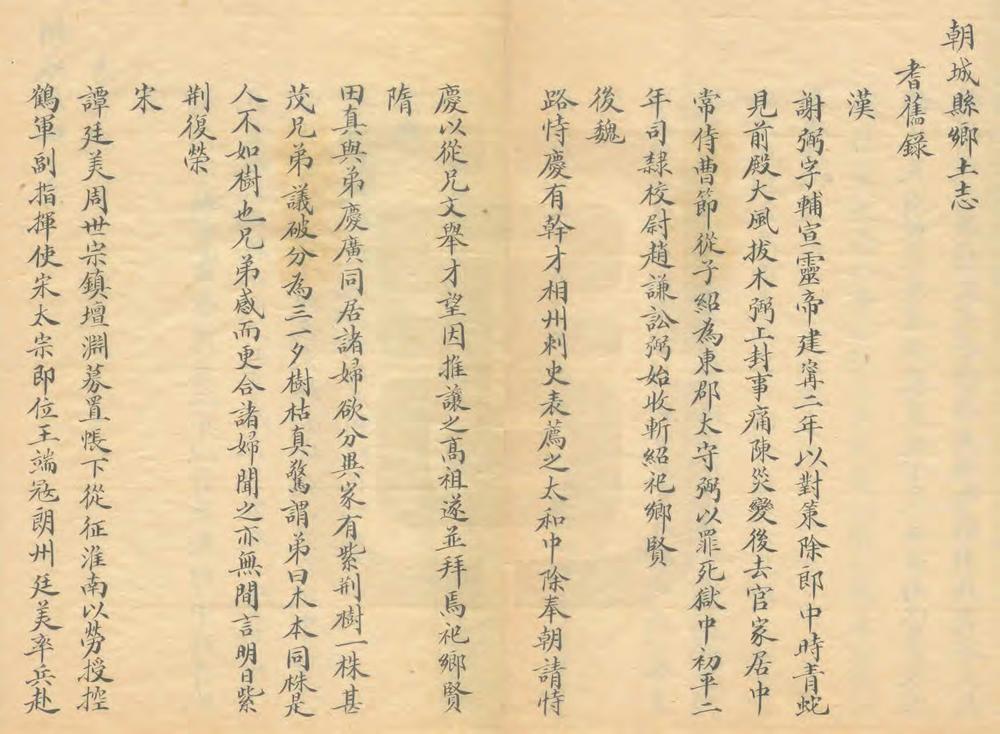 朝城縣鄉土志
耆舊錄
漢
謝弼字輔宣靈帝建寧二年以對策除郎中時青蛇
見前殿大風拔木弼上封事痛陳災變後去官家居中
常侍曹節從子紹為東郡太守弼以罪死獄中初平二
年司隸校尉趙謙訟弼始收斬紹祀鄉賢
後魏
路恃慶有幹才相州刺史表薦之太和中除奉朝請恃
慶以從兄文舉才望因推讓之高祖遂並拜焉祀鄉賢
隋
田真與弟慶廣同居諸婦欲分異家有紫荆樹一株甚
茂兄弟議破分為三一夕樹枯真驚謂弟曰木本同株是
人不如樹也兄弟感而更合諸婦聞之亦無間言明日紫
荆復榮
宋
譚廷美周世宗鎮壇淵募置帳下從征淮南以勞授控
鶴軍副指揮使宋太宗即位王端寇朗州廷美率兵赴